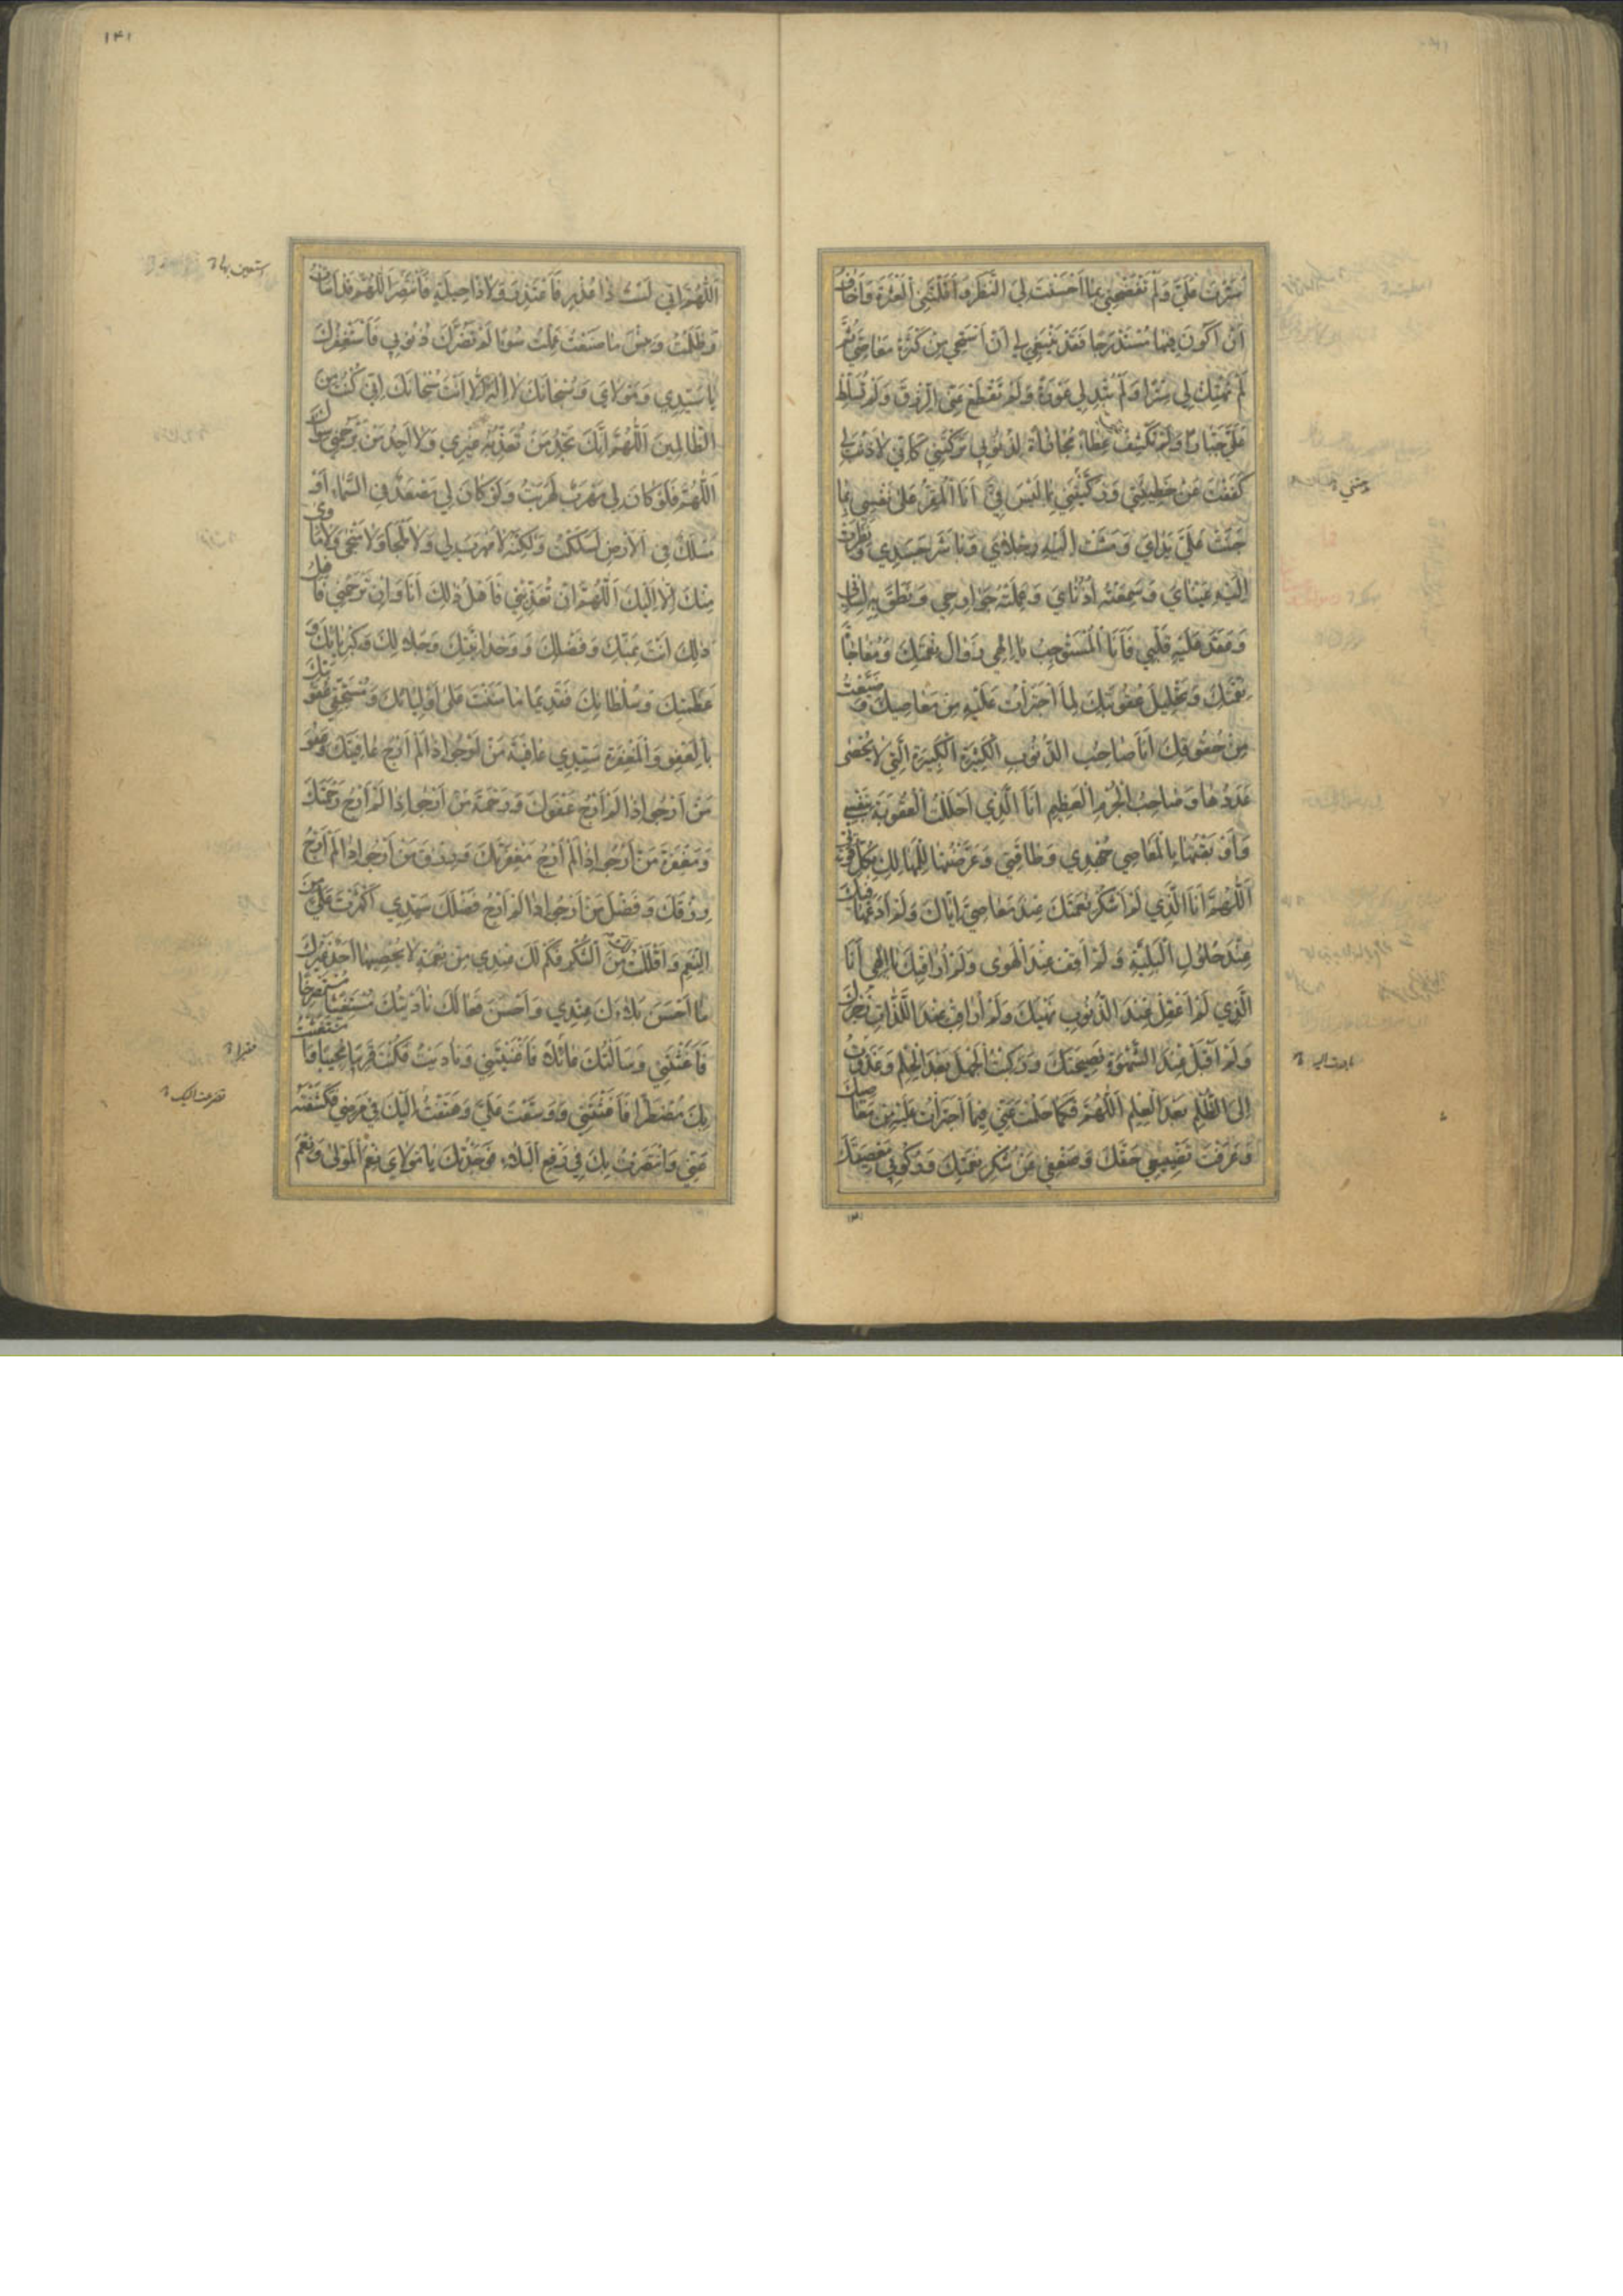 سَتَرْتَ عَلَيَّ وَلَمْ تَفْضَحْنِي بِمَا اَحْسَنْتَ لِيَ النَّظَرَ وَاَقَلْتَنِي الْعَثْرَةَ وَاَخَافُ
اَنْ اَكُونَ فِيهَا مُسْتَدْرَجًا فَقَدْ يَنْبَغِي لِي اَنْ اَسْتَحْيِيَ مِنْ كَثْرَةِ مَعَاصِيَّ ثُمَّ
لَمْ تَهْتِكْ لِي سِتْرًا وَلَمْ تُبْدِ لِي عَوْرَةً وَلَمْ تَقْطَعْ عَنِّي الرِّزْقَ وَلَمْ تُسَلِّطْ
عَلَيَّ جَبَّارًا وَلَمْ تَكْشِفْ عَنِّي غِطَاءً مُجَازَاةً لِذُنُوبِي تَرَكْتَنِي كَاَنِّي لَا ذَنْبَ لِي
كَفَفْتَ عَنْ خَطِيئَتِي وَزَكَّيْتَنِي بِمَا لَيْسَ فِيَّ اَنَا الْمُقِرُّ عَلَى نَفْسِي بِمَا
جَنَتْ عَلَيَّ يَدَايَ وَمَشَتْ اِلَيْهِ رِجْلَايَ وَبَاشَرَ جَسَدِي وَنَظَرَتْ
اِلَيْهِ عَيْنَايَ وَسَمِعَتْهُ اُذُنَايَ وَعَمِلَتْهُ جَوَارِحِي وَنَطَقَ بِهِ لِسَانِي
وَعَقَدَ عَلَيْهِ قَلْبِي فَاَنَا الْمُسْتَوْجِبُ يَا اِلَهِي زَوَالَ نِعْمَتِكَ وَمُفَاجَاةَ
نِقْمَتِكَ وَتَحْلِيلَ عُقُوبَتِكَ لِمَا اجْتَرَأْتُ عَلَيْهِ مِنْ مَعَاصِيكَ وَضَيَّعْتُ
مِنْ حُقُوقِكَ اَنَا صَاحِبُ الذُّنُوبِ الْكَثِيرَةِ الْكَبِيرَةِ الَّتِي لَا يُحْصَى
عَدَدُهَا وَصَاحِبُ الْجُرْمِ الْعَظِيمِ اَنَا الَّذِي اَحْلَلْتُ الْعُقُوبَةَ بِنَفْسِي
وَاَوْبَقْتُهَا بِالْمَعَاصِي جُهْدِي وَطَاقَتِي وَعَرَّضْتُهَا لِلْمَهَالِكِ بِكُلِّ قُوَّتِي
اَللّٰهُمَّ اَنَا الَّذِي لَمْ اَشْكُرْ نِعَمَكَ عِنْدَ مَعَاصِيَّ اِيَّاكَ وَلَمْ اَدَعْهَا فِيكَ
عِنْدَ حُلُولِ الْبَلِيَّةِ وَلَمْ اَقِفْ عِنْدَ الْهَوَى وَلَمْ اُرَاقِبْكَ يَا اِلَهِي اَنَا
الَّذِي لَمْ اَعْقِلْ عِنْدَ الذُّنُوبِ نَهْيَكَ وَلَمْ اُرَاقِبْ عِنْدَ اللَّذَّاتِ زَجْرَكَ
وَلَمْ اَقْبَلْ عِنْدَ الشَّهْوَةِ نَصِيحَتَكَ وَرَكِبْتُ الْجَهْلَ بَعْدَ الْحِلْمِ وَغَدَوْتُ
اِلَى الظُّلْمِ بَعْدَ الْعِلْمِ اَللّٰهُمَّ فَكَمَا حَلُمْتَ عَنِّي فِيمَا اجْتَرَأْتُ عَلَيْهِ مِنْ مَعَاصِيكَ
وَعَرَفْتَ تَضْيِيعِي حَقَّكَ وَضَعْفِي عَنْ شُكْرِ نِعْمَتِكَ وَرُكُوبِي مَعْصِيَتَكَ
١٤١
اَللّٰهُمَّ اِنِّي لَسْتُ ذَا عُذْرٍ فَاَعْتَذِرَ وَلَا ذَا حِيلَةٍ فَاَنْتَصِرَ اَللّٰهُمَّ قَدْ اَسَأْتُ
وَظَلَمْتُ وَبِئْسَ مَا صَنَعْتُ عَمِلْتُ سُوءًا لَمْ تَضُرَّكَ ذُنُوبِي فَاَسْتَغْفِرُكَ
يَا سَيِّدِي وَمَوْلَايَ وَسُبْحَانَكَ لَا اِلَهَ اِلَّا اَنْتَ سُبْحَانَكَ اِنِّي كُنْتُ مِنَ
الظَّالِمِينَ اَللّٰهُمَّ اِنَّكَ تَجِدُ مَنْ تُعَذِّبُهُ غَيْرِي وَلَا اَجِدُ مَنْ يَرْحَمُنِي سِوَاكَ
اَللّٰهُمَّ فَلَوْ كَانَ لِي مَهْرَبٌ لَهَرَبْتُ وَلَوْ كَانَ لِي مَصْعَدٌ فِي السَّمَاءِ اَوْ
مَسْلَكٌ فِي الْاَرْضِ لَسَلَكْتُ وَلٰكِنَّهُ لَا مَهْرَبَ لِي وَلَا مَلْجَأَ وَلَا مَنْجَى وَلَا مَأْوَى
مِنْكَ اِلَّا اِلَيْكَ اَللّٰهُمَّ اِنْ تُعَذِّبْنِي فَاَهْلُ ذٰلِكَ اَنَا وَاِنْ تَرْحَمْنِي فَاَهْلُ
ذٰلِكَ اَنْتَ بِمَنِّكَ وَفَضْلِكَ وَوَحْدَانِيَّتِكَ وَجَلَالِكَ وَكِبْرِيَائِكَ وَ
عَظَمَتِكَ وَسُلْطَانِكَ فَقَدِيمًا مَا مَنَنْتَ عَلَى اَوْلِيَائِكَ وَمُسْتَحِقِّي عُقُوبَتِكَ
بِالْعَفْوِ وَالْمَغْفِرَةِ سَيِّدِي عَافِيَةَ مَنْ اَرْجُو اِذَا لَمْ اَرْجُ عَافِيَتَكَ وَعَفْوَ
مَنْ اَرْجُو اِذَا لَمْ اَرْجُ عَفْوَكَ وَرَحْمَةَ مَنْ اَرْجُو اِذَا لَمْ اَرْجُ رَحْمَتَكَ
وَمَغْفِرَةَ مَنْ اَرْجُو اِذَا لَمْ اَرْجُ مَغْفِرَتَكَ وَرِزْقَ مَنْ اَرْجُو اِذَا لَمْ اَرْجُ
رِزْقَكَ وَفَضْلَ مَنْ اَرْجُو اِذَا لَمْ اَرْجُ فَضْلَكَ سَيِّدِي اَكْثَرْتَ عَلَيَّ مِنَ
النِّعَمِ وَاَقْلَلْتُ مِنَ الشُّكْرِ فَكَمْ لَكَ عِنْدِي مِنْ نِعْمَةٍ لَا يُحْصِيهَا اَحَدٌ غَيْرُكَ
مَا اَحْسَنَ بَلَاءَكَ عِنْدِي وَاَحْسَنَ فِعَالَكَ نَادَيْتُكَ مُسْتَغِيثًا مُسْتَصْرِخًا
فَاَغَثْتَنِي وَسَأَلْتُكَ عَائِلًا فَاَغْنَيْتَنِي وَنَادَيْتُ فَكُنْتَ قَرِيبًا مُجِيبًا وَاسْتَغَثْتُ
بِكَ مُضْطَرًّا فَاَغَثْتَنِي وَوَسَّعْتَ عَلَيَّ وَهَتَفْتُ اِلَيْكَ فِي مَرَضِي فَكَشَفْتَهُ
عَنِّي وَانْتَصَرْتُ بِكَ فِي رَفْعِ الْبَلَاءِ فَوَجَدْتُكَ يَا مَوْلَايَ نِعْمَ الْمَوْلَى وَنِعْمَ